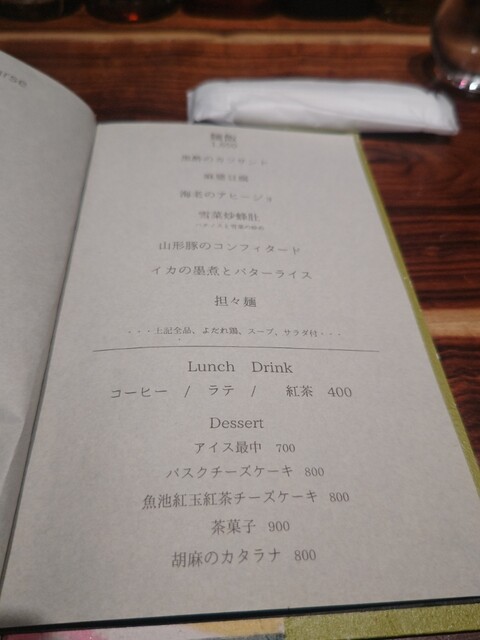 麺飯
黒酢のカツサンド
海老のアヒージョ
雪菜炒蜂肚
山形豚のコンフィタード
イカの墨煮とバターライス
担々麺
・・・上記全品、よだれ鶏、スープ、サラダ付・・・
Lunch Drink
コーヒー / ラテ / 紅茶 400
Dessert
アイス最中 700
バスクチーズケーキ 800
魚池紅玉紅茶チーズケーキ 800
茶菓子 900
胡麻のカタラナ 800